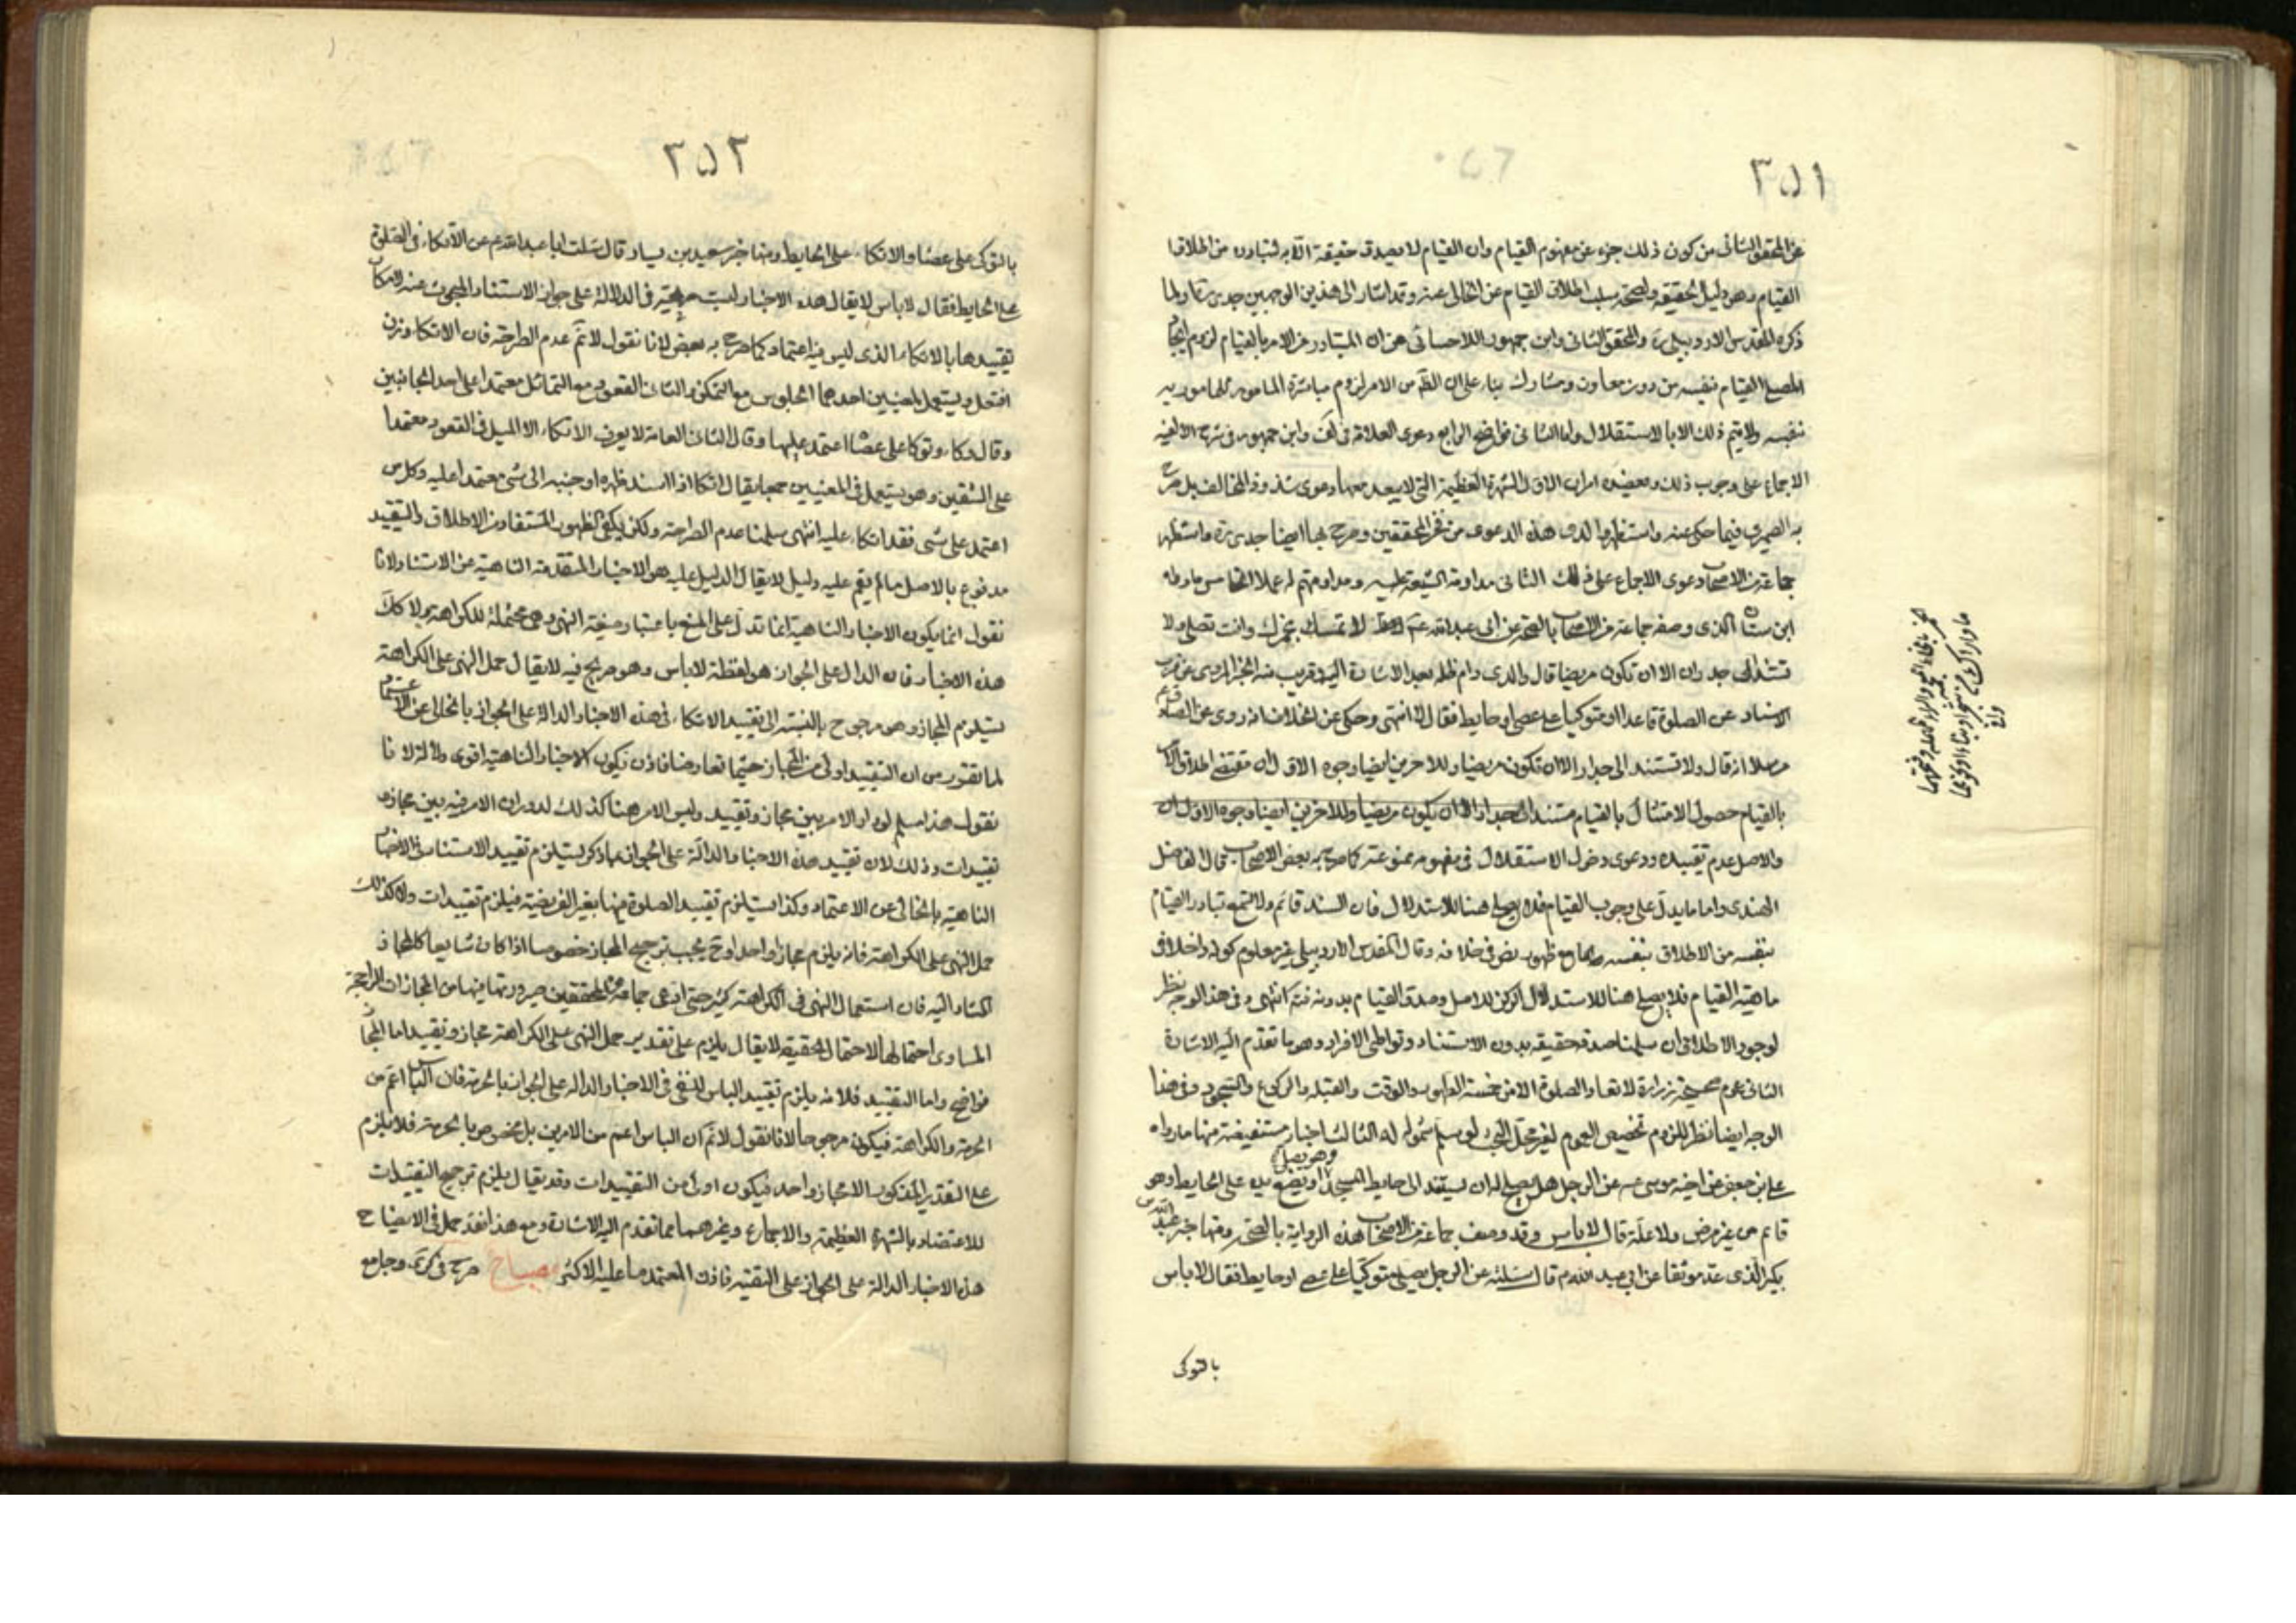 ٣٥١
عن المحقق الثاني من كون ذلك جزء عن مفهوم القيام وان القيام لا يصدق حقيقة الا به لتبادره من اطلاق
القيام وهو دليل الحقيقة ولصحة سلب اطلاق القيام عن الخالي عنه وقد اشار الى هذين الوجهين جدي ولما
ذكره المقدس الاردبيلي ره والمحقق الثاني وابن جمهور اللاحسائي من ان المتبادر من الامر بالقيام لزوم
المصلي القيام بنفسه من دون معاون ومشارك بناء على ان الظ من الامر لزوم مباشرة المامور للمامور به
بنفسه ولا يتم ذلك الا بالاستقلال واما الثاني فواضح الرابع دعوى العلامة في لف وابن جمهور في شرح الالفية
الاجماع على وجوب ذلك ويعضده امران الاول الشهرة العظيمة التي لا يبعد معها دعوى شذوذ المخالف بل صرح
به الصيمري فيما حكى عنه واستظهر والدي هذه الدعوى من فخر المحققين وصرح بها ايضا جدي ره واستظهر
جماعة من الاصحاب دعوى الاجماع على ذلك الثاني مداومة الشيعة عليه ومداومتهم له عملا الخامس ما رواه
ابن سنان الذي وصفه جماعة من الاصحاب بالصحة عن ابي عبد الله عم لا تمسك بخمرك وانت تصلي ولا
تستند الى جدار الا ان تكون مريضا قال والدي دام ظله بعد الاشارة اليه وقريب منه الخبر المروي عن قرب
الاسناد عن الصلوة قاعدا او متوكيا على عصى او حايط فقال لا انتهى وحكى عن الخلاف انه روي عن الصادق عم
مرسلا انه قال ولا تستند الى جدار الا ان تكون مريضا وللاخرين ايضا وجوه الاول ان مقتضى اطلاق الامر
بالقيام حصول الامتثال بالقيام مستندا الى جدار الا ان يكون مريضا وللاخرين ايضا وجوه الاول ان
والاصل عدم تقييده ودعوى دخول الاستقلال في مفهومه ممنوعة كما صرح به بعض الاصحاب فقال الفاضل
الهندي واما ما يدل على وجوب القيام فلا يصلح هنا للاستدلال فان المستند قائم ولا نمنع تبادر القيام
بنفسه من الاطلاق بنفسه مع ظهور بعض في خلافه وقال المقدس الاردبيلي غير معلوم كونه داخلا في
ماهية القيام فلا يصلح هنا للاستدلال لركن للاصل وصدق القيام بدونه فته انتهى وفي هذا الوجه نظر
لوجود الاطلاق ان سلمنا صدقه حقيقة بدون الاستناد وتواطئ الافراد وهو ما تقدم اليه الاشارة
الثاني عموم صحيحة زرارة لا تعاد الصلوة الا من خمسة الطهور والوقت والقبلة والركوع والسجود وفي هذا
الوجه ايضا نظر للزوم تخصيص العموم لغير محل البحث لو سلم شموله له الثالث اخبار مستفيضة منها ما رواه
علي بن جعفر عن اخيه موسى عم عن الرجل هل يصلح له ان يستند الى حايط المسجد وهو يصلي او يضع يده على الحايط وهو
قائم من غير مرض ولا علة قال لا باس وقد وصف جماعة من الاصحاب هذه الرواية بالصحة ومنها خبر عبد الله بن
بكير الذي عد موثقا عن ابي عبد الله م قال سئلته عن الرجل يصلي متوكيا على عصى او حايط فقال لا باس
بالتوكي
الخمر بالخاء المعجمة
ما واراك من شجر او بناء او نحوهما
٣٥٢
بالتوكي على عصا والاتكاء على الحايط ومنها خبر سعيد بن يسار قال سئلت ابا عبد الله عم عن الاتكاء في الصلوة
على الحايط فقال لا باس لا يقال هذه الاخبار ليست صريحة في الدلالة على جواز الاستناد المبحوث عنه لامكان
تقييدها بالاتكاء الذي ليس فيه اعتماد كما صرح به بعض لانا نقول لا نم عدم الصراحة فان الاتكاء وزن
افتعل ويستعمل بمعنيين احدهما الجلوس مع التمكن والثاني القعود مع التمائل معتمدا على احد الجانبين
وقال وكاء وتوكا على عصا اعتمد عليها وقال الثاني العامة لا يعرف الاتكاء الا الميل في القعود معتمدا
على الشقين وهو يستعمل في المعنيين جميعا يقال اتكا اذا اسند ظهره او جنبه الى شئ معتمدا عليه وكل من
اعتمد على شئ فقد اتكاء عليه انتهى سلمنا عدم الصراحة ولكن يكفي الظهور المستفاد من الاطلاق والتقييد
مدفوع بالاصل ما لم يقم عليه دليل لا يقال الدليل عليه هو الاخبار المتقدمة الناهية عن الاستناد لانا
نقول انما يكون الاخبار الناهية انما تدل على المنع باعتبار صيغة النهي وهي محتملة للكراهة ولا كك
هذه الاخبار فان الدال على الجواز هو لفظة لا باس وهو صريح فيه لا يقال حمل النهي على الكراهة
يستلزم المجاز وهو مرجوح بالنسبة الى تقييد الاتكاء في هذه الاخبار الدالة على الجواز بالخالي عن الاعتماد
لما تقرر من ان التقييد اولى من المجاز حيثما تعارضا فاذن يكون الاخبار الناهية اقوى دلالة لانا
نقول هذا مسلم لو دار الامر بين مجاز وتقييد وليس الامر هنا كذلك لدوران الامر فيه بين مجاز و
تقييدات وذلك لان تقييد هذه الاخبار الدالة على الجواز بما ذكر يستلزم تقييد الاستناد في الاخبار
الناهية بالخالي عن الاعتماد وكذا يستلزم تقييد الصلوة فيها بغير الفريضة فيلزم تقييدات ولا كذلك
حمل النهي على الكراهة فانه يلزم مجاز واحد او ح يجب ترجيح المجاز خصوصا اذا كان شايعا كالمجاز
المشار اليه فان استعمال النهي في الكراهة كثير حتى ادعى جماعة من المحققين صيرورتها فيها من المجازات الراجحة
المساوي احتمالها لاحتمال الحقيقة لا يقال يلزم على تقدير حمل النهي على الكراهة مجاز وتقييد اما المجاز
فواضح واما التقييد فلانه يلزم تقييد الباس المنفي في الاخبار الدالة على الجواز بالحرمة فان الباس اعم من
الحرمة والكراهة فيكون مرجوحا لانا نقول لا نم ان الباس اعم من الامرين بل مخصوص بالحرمة فلا يلزم
على التقدير المذكور الا مجاز واحد فيكون اولى من التقييدات وقد يقال يلزم ترجيح التقييدات
للاعتضاد بالشهرة العظيمة والاجماع وغيرهما مما تقدم اليه الاشارة ومع هذا فقد حمل في الايضاح
هذه الاخبار الدالة على الجواز على التقية فاذن المعتمد ما عليه الاكثر مصباح صرح في كرى وجامع